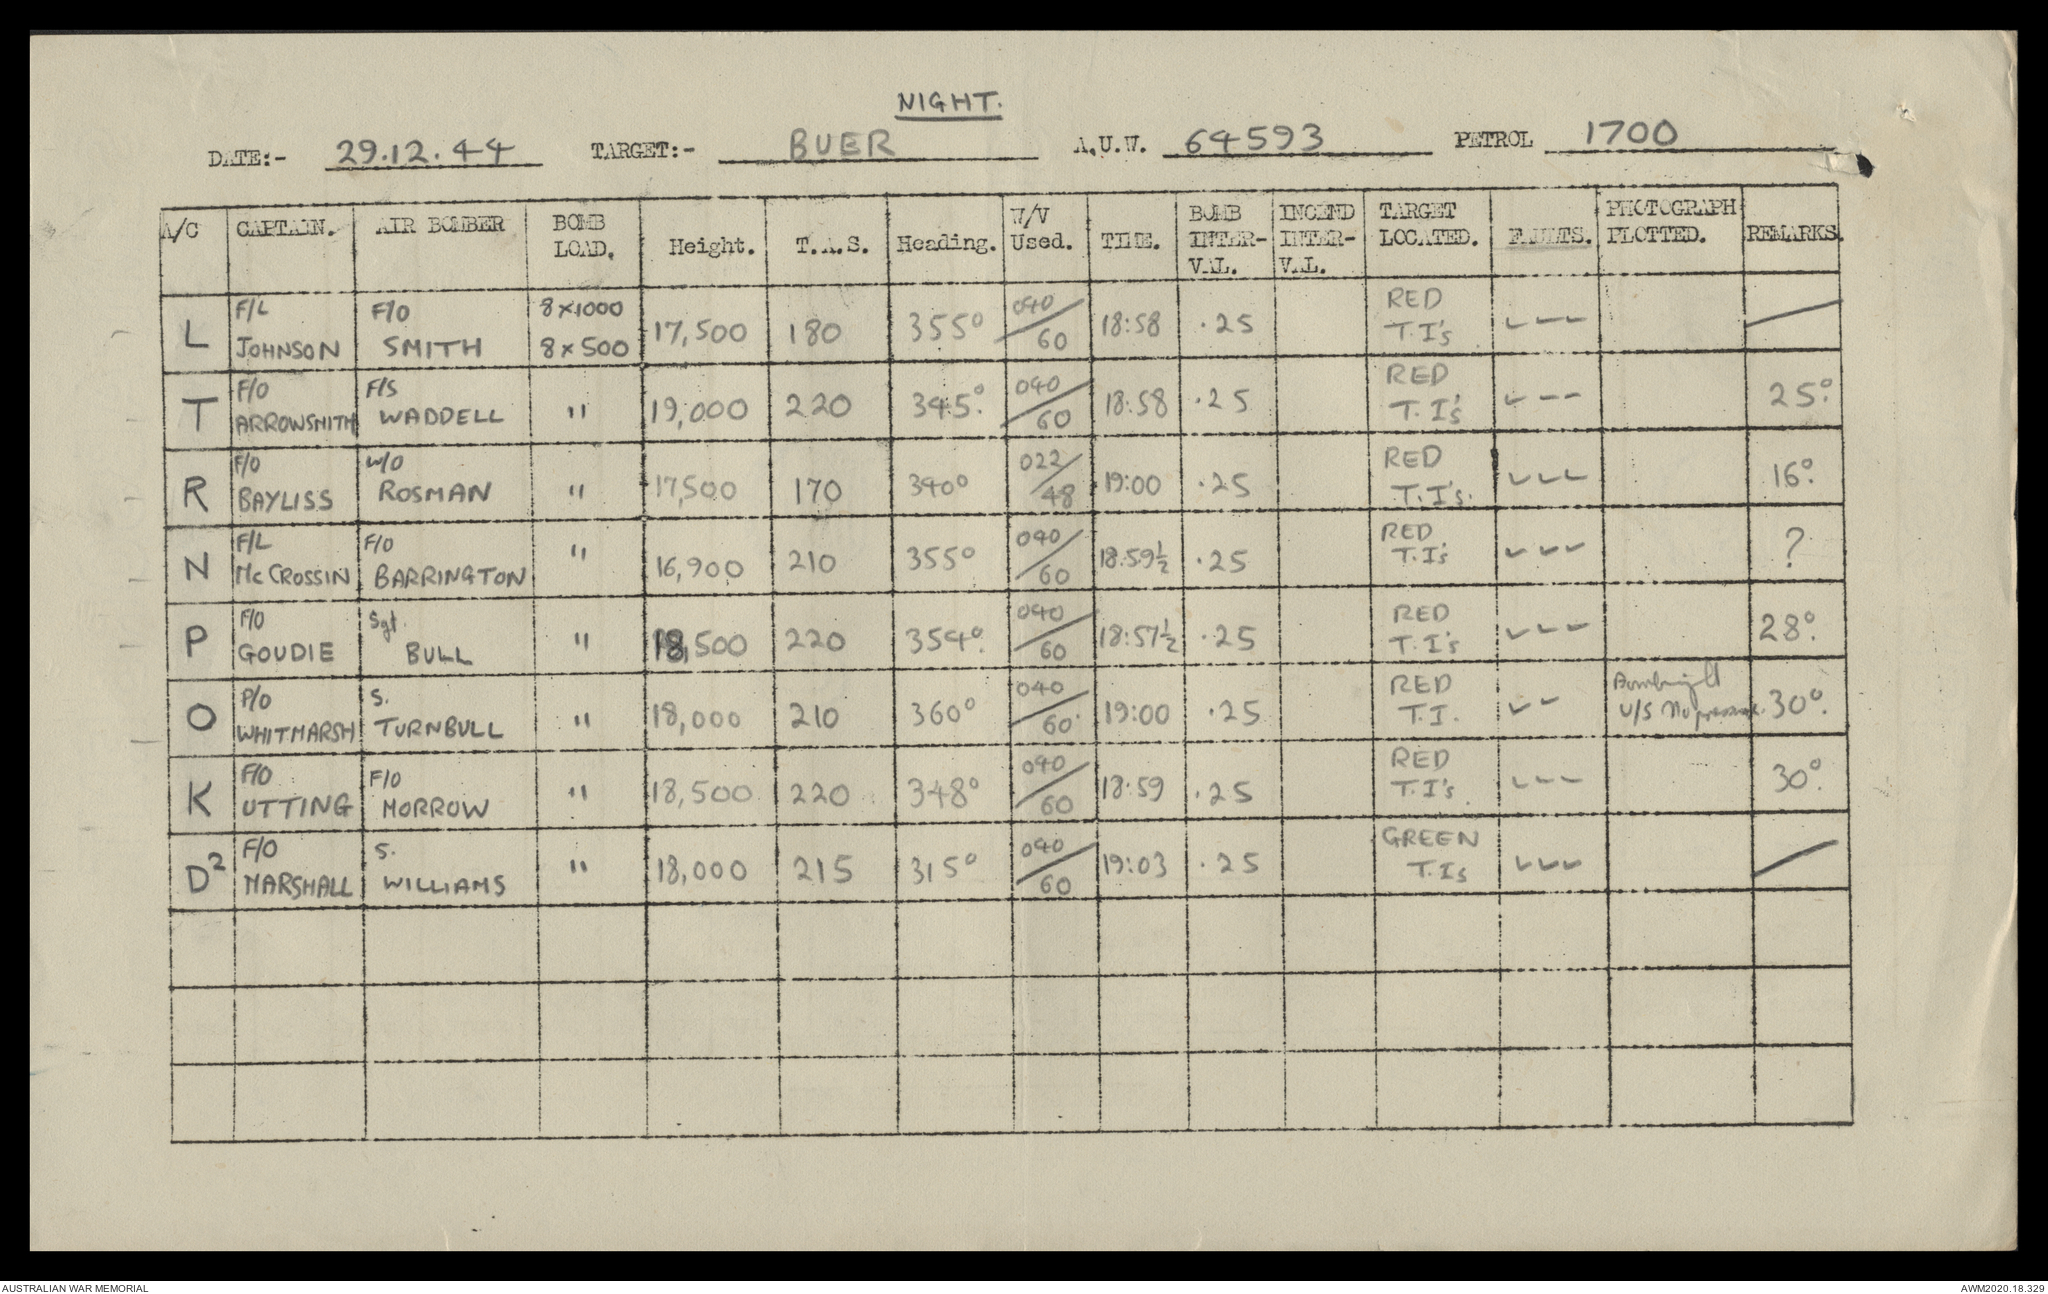 NIGHT.
DATE:- 29.12.44 TARGET:- BUER A.U.W. 64593 PETROL 1700
A/C CAPTAIN. AIR BOMBER BOMB LOAD. Height. T.A.S. Heading. W/V Used. TIME. BOMB INTER-VAL. INCEND INTER-VAL. TARGET LOCATED. FAULTS. PHOTOGRAPH PLOTTED. REMARKS.
L F/L JOHNSON F/O SMITH 8x1000 8x500 17,500 180 355° 040/60 18:58 .25 RED T.I's ✓ – –
T F/O ARROWSMITH F/S WADDELL " 19,000 220 345°. 040/60 18:58 .25 RED T.I's ✓ – – 25°.
R F/O BAYLISS W/O ROSMAN " 17,500 170 340° 022/48 19:00 .25 RED T.I's. ✓ ✓ ✓ 16°.
N F/L McCROSSIN F/O BARRINGTON " 16,900 210 355° 040/60 18:59½ .25 RED T.I's ✓ ✓ ✓ ?
P F/O GOUDIE Sgt. BULL " 18,500 220 354°. 040/60 18:57½ .25 RED T.I's ✓ ✓ – 28°.
O P/O WHITMARSH S. TURNBULL " 18,000 210 360° 040/60 19:00 .25 RED T.I. ✓ – Bombsight U/S No pressure. 30°.
K F/O UTTING F/O MORROW " 18,500 220 348° 040/60 18:59 .25 RED T.I's ✓ – – 30°.
D² F/O MARSHALL S. WILLIAMS " 18,000 215 315° 040/60 19:03 .25 GREEN T.Is ✓ ✓ ✓
AUSTRALIAN WAR MEMORIAL AWM2020.18.329